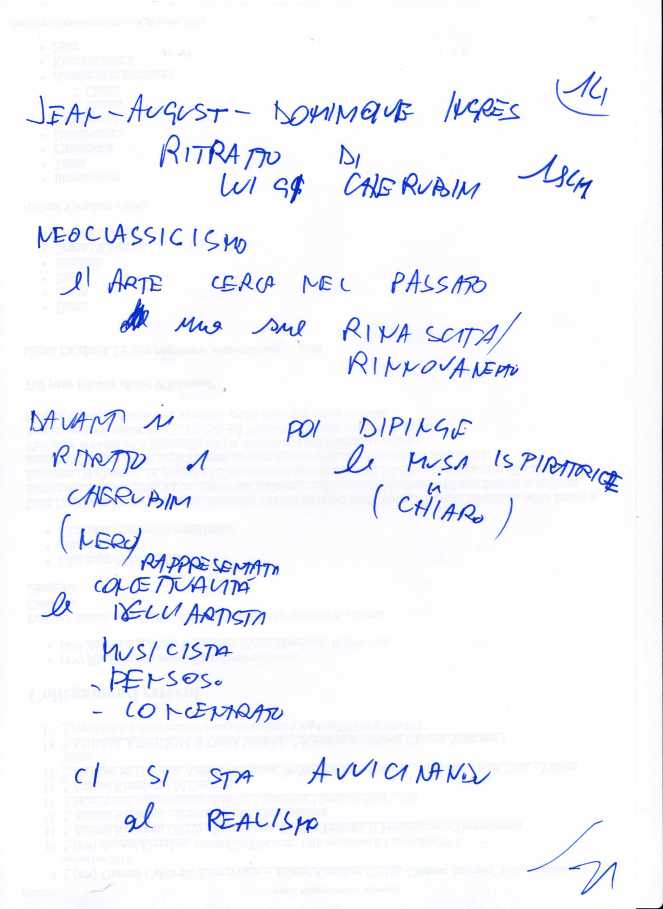 JEAN-AUGUST-DOMINIQUE INGRES 14
RITRATTO DI
LUIGI CHERUBINI
NEOCLASSICISMO
l'ARTE CERCA NEL PASSATO
una sua RINASCITA/
RINNOVAMENTO
DAVANTI
RITRATTO
CHERUBINI
(NERO)
RAPPRESENTATA
la CONCETTUALITÁ
DELL'ARTISTA
MUSICISTA
- PENSOSO
- CONCENTRATO
POI DIPINGE
la MUSA ISPIRATRICE
(in CHIARO)
CI SI STA AVVICINANDO
al REALISMO